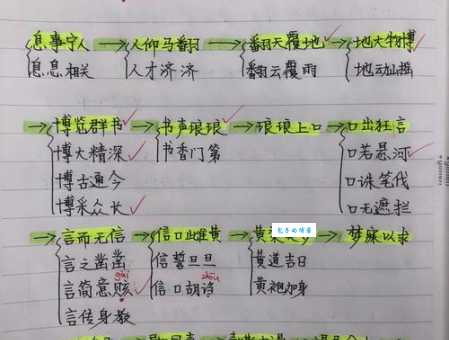 息事宁人 人仰马翻 翻天覆地 地大物博
息息相关 人才济济 翻云覆雨 地动山摇
博览群书 书声琅琅 琅琅上口 口出狂言
博大精深 书香门第 口若悬河
博古通今 口诛笔伐
博采众长 口无遮拦
言而无信 信口雌黄 黄 梦寐以求
言之凿凿 信誓旦旦 黄道吉日
言简意赅 信口胡诌 黄袍加身
言传身教